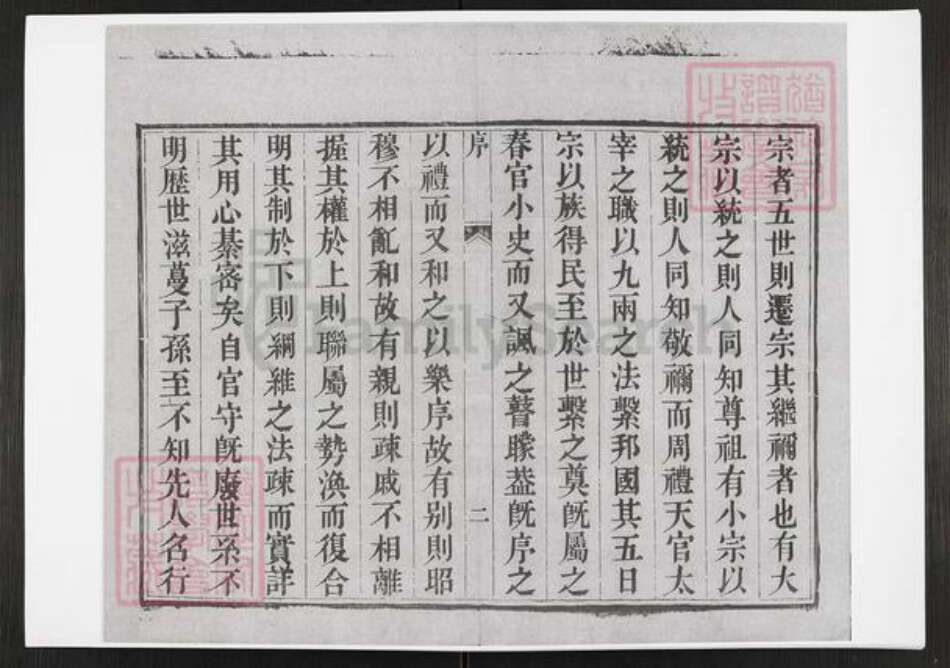 宗者五世則遷宗其繼禰者也有大
宗以統之則人同知尊祖有小宗以
統之則人同知敬禰而周禮天官太
宰之職以九兩之法繫邦國其五曰
宗以族得民至於世繫之奠旣屬之
春官小史而又諷之瞽矇葢旣序之
序
二
以禮而又和之以樂序故有别則昭
穆不相亂和故有親則疎戚不相離
握其權於上則聯屬之勢渙而復合
明其制於下則綱維之法疎而實詳
其用心綦密矣自官守旣廢世系不
明歴世滋蔓子孫至不知先人名行
FamilySearch